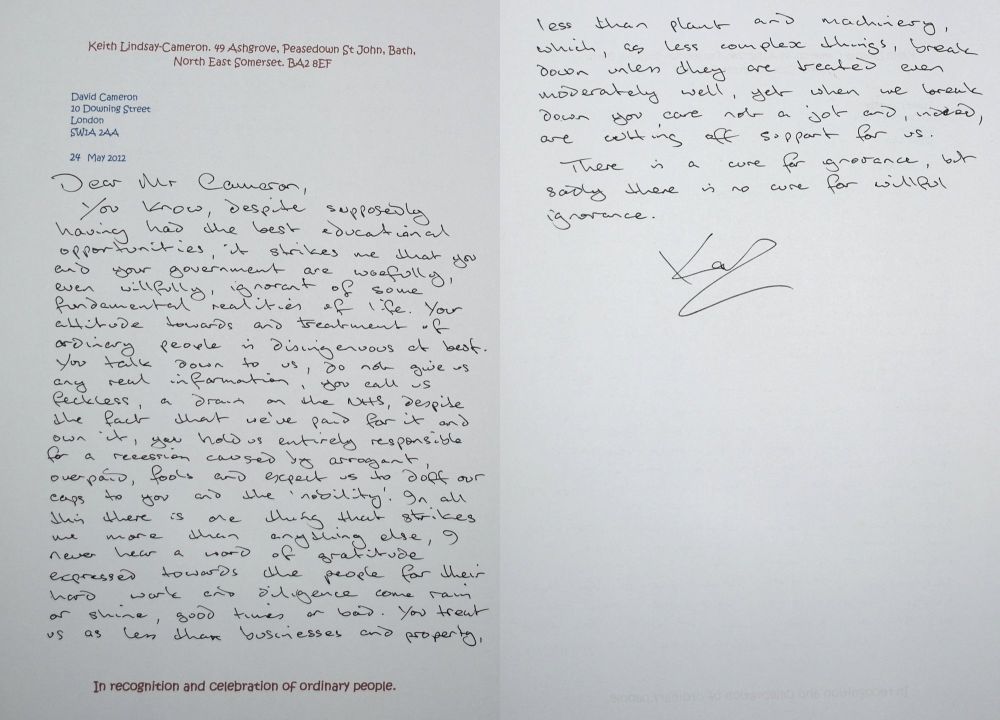 Keith Lindsay-Cameron. 49 Ashgrove, Peasedown St John, Bath,
North East Somerset. BA2 8EF
David Cameron
10 Downing Street
London
SW1A 2AA
24 May 2012
Dear Mr Cameron,
You know, despite supposedly
having had the best educational
opportunities, it strikes me that you
and your government are woefully,
even willfully, ignorant of some
fundamental realities of life. Your
attitude towards and treatment of
ordinary people is disingenuous at best.
You talk down to us, do not give us
any real information, you call us
feckless, a drain on the NHS, despite
the fact that we've paid for it and
own it, you hold us entirely responsible
for a recession caused by arrogant,
overpaid, fools and expect us to doff our
caps to you and the 'nobility'. In all
this there is one thing that strikes
me more than anything else, I
never hear a word of gratitude
expressed towards the people for their
hard work and diligence come rain
or shine, good times or bad. You treat
us as less than businesses and property,
In recognition and celebration of ordinary people.
less than plant and machinery,
which, as less complex things, break
down unless they are treated even
moderately well, yet when we break
down you care not a jot and, indeed,
are cutting off support for us.
There is a cure for ignorance, but
sadly there is no cure for willful
ignorance.